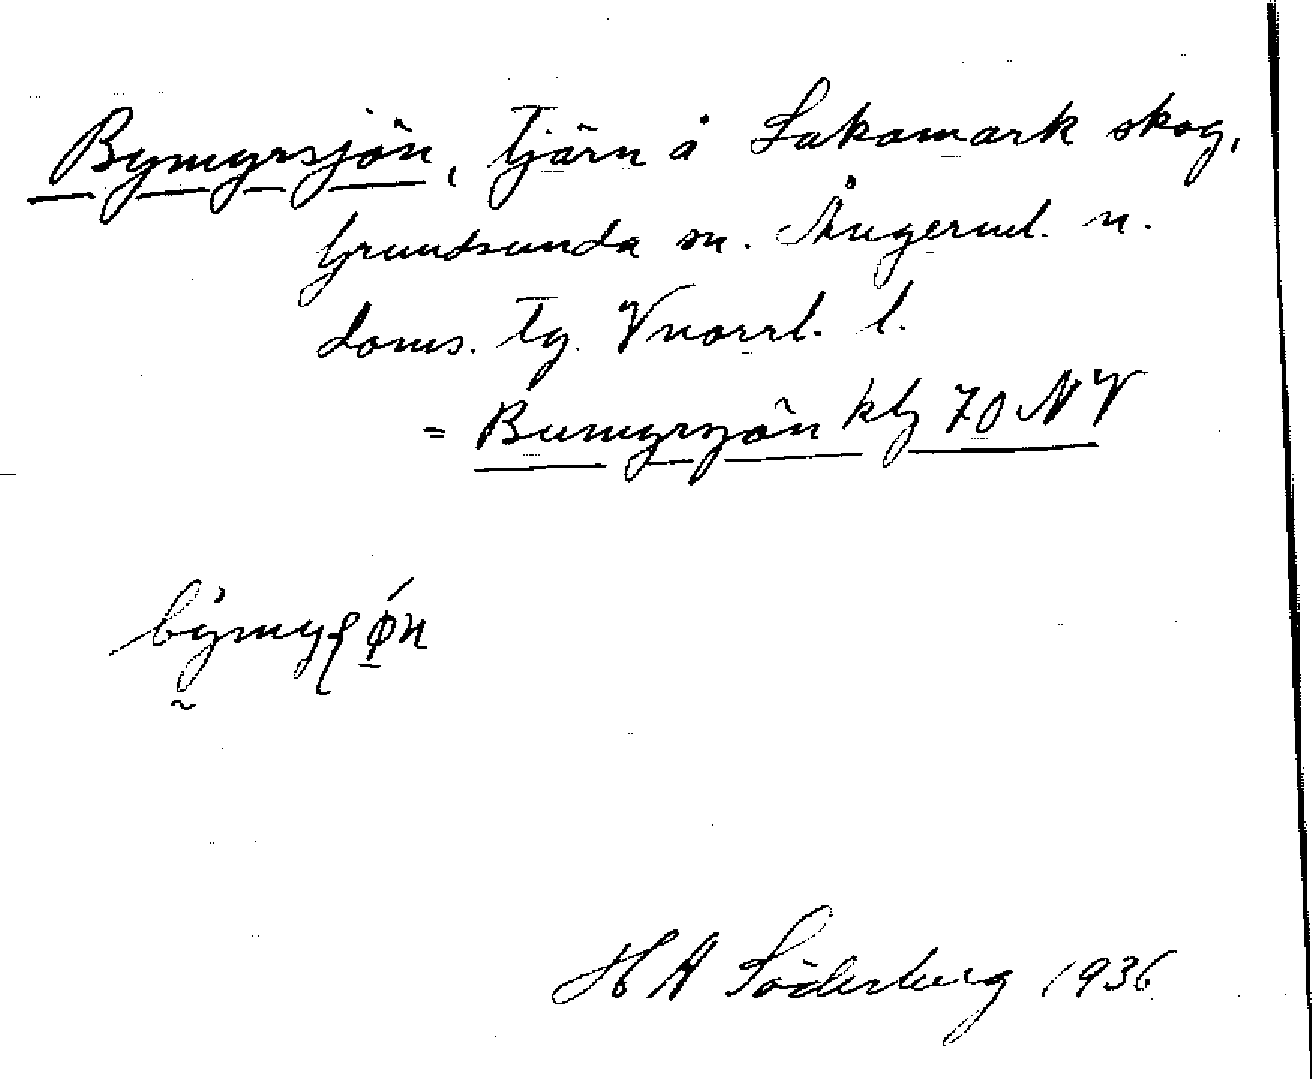 Bymyrsjön, Tjärn å Sakamark skog,
Grundsunda sn. Ångerml. n.
doms. Tg. Vnorrl. l.
= Bumyrsjön kbl 70 NV
H A Söderberg 1936